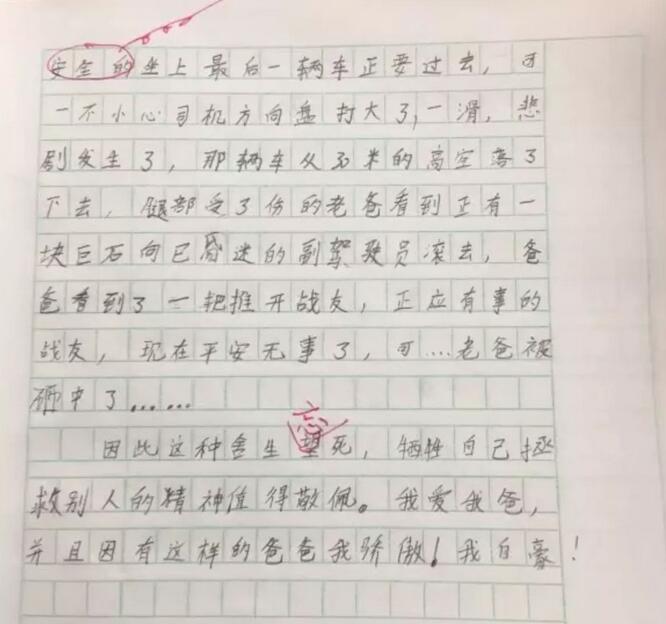 安全的坐上最后一辆车正要过去，可
一不小心司机方向盘打大了，一滑，悲
剧发生了，那辆车从30米的高空落了
下去，腿部受了份的老爸看到正有一
块巨石向已昏迷的副驾驶员滚去，爸
爸看到了一把推开战友，正应有事的
战友，现在平安无事了，可...老爸被
砸中了......
忘
因此这种舍生望死，牺牲自己拯
救别人的精神值得敬佩。我爱我爸，
并且因有这样的爸爸我骄傲！我自豪！